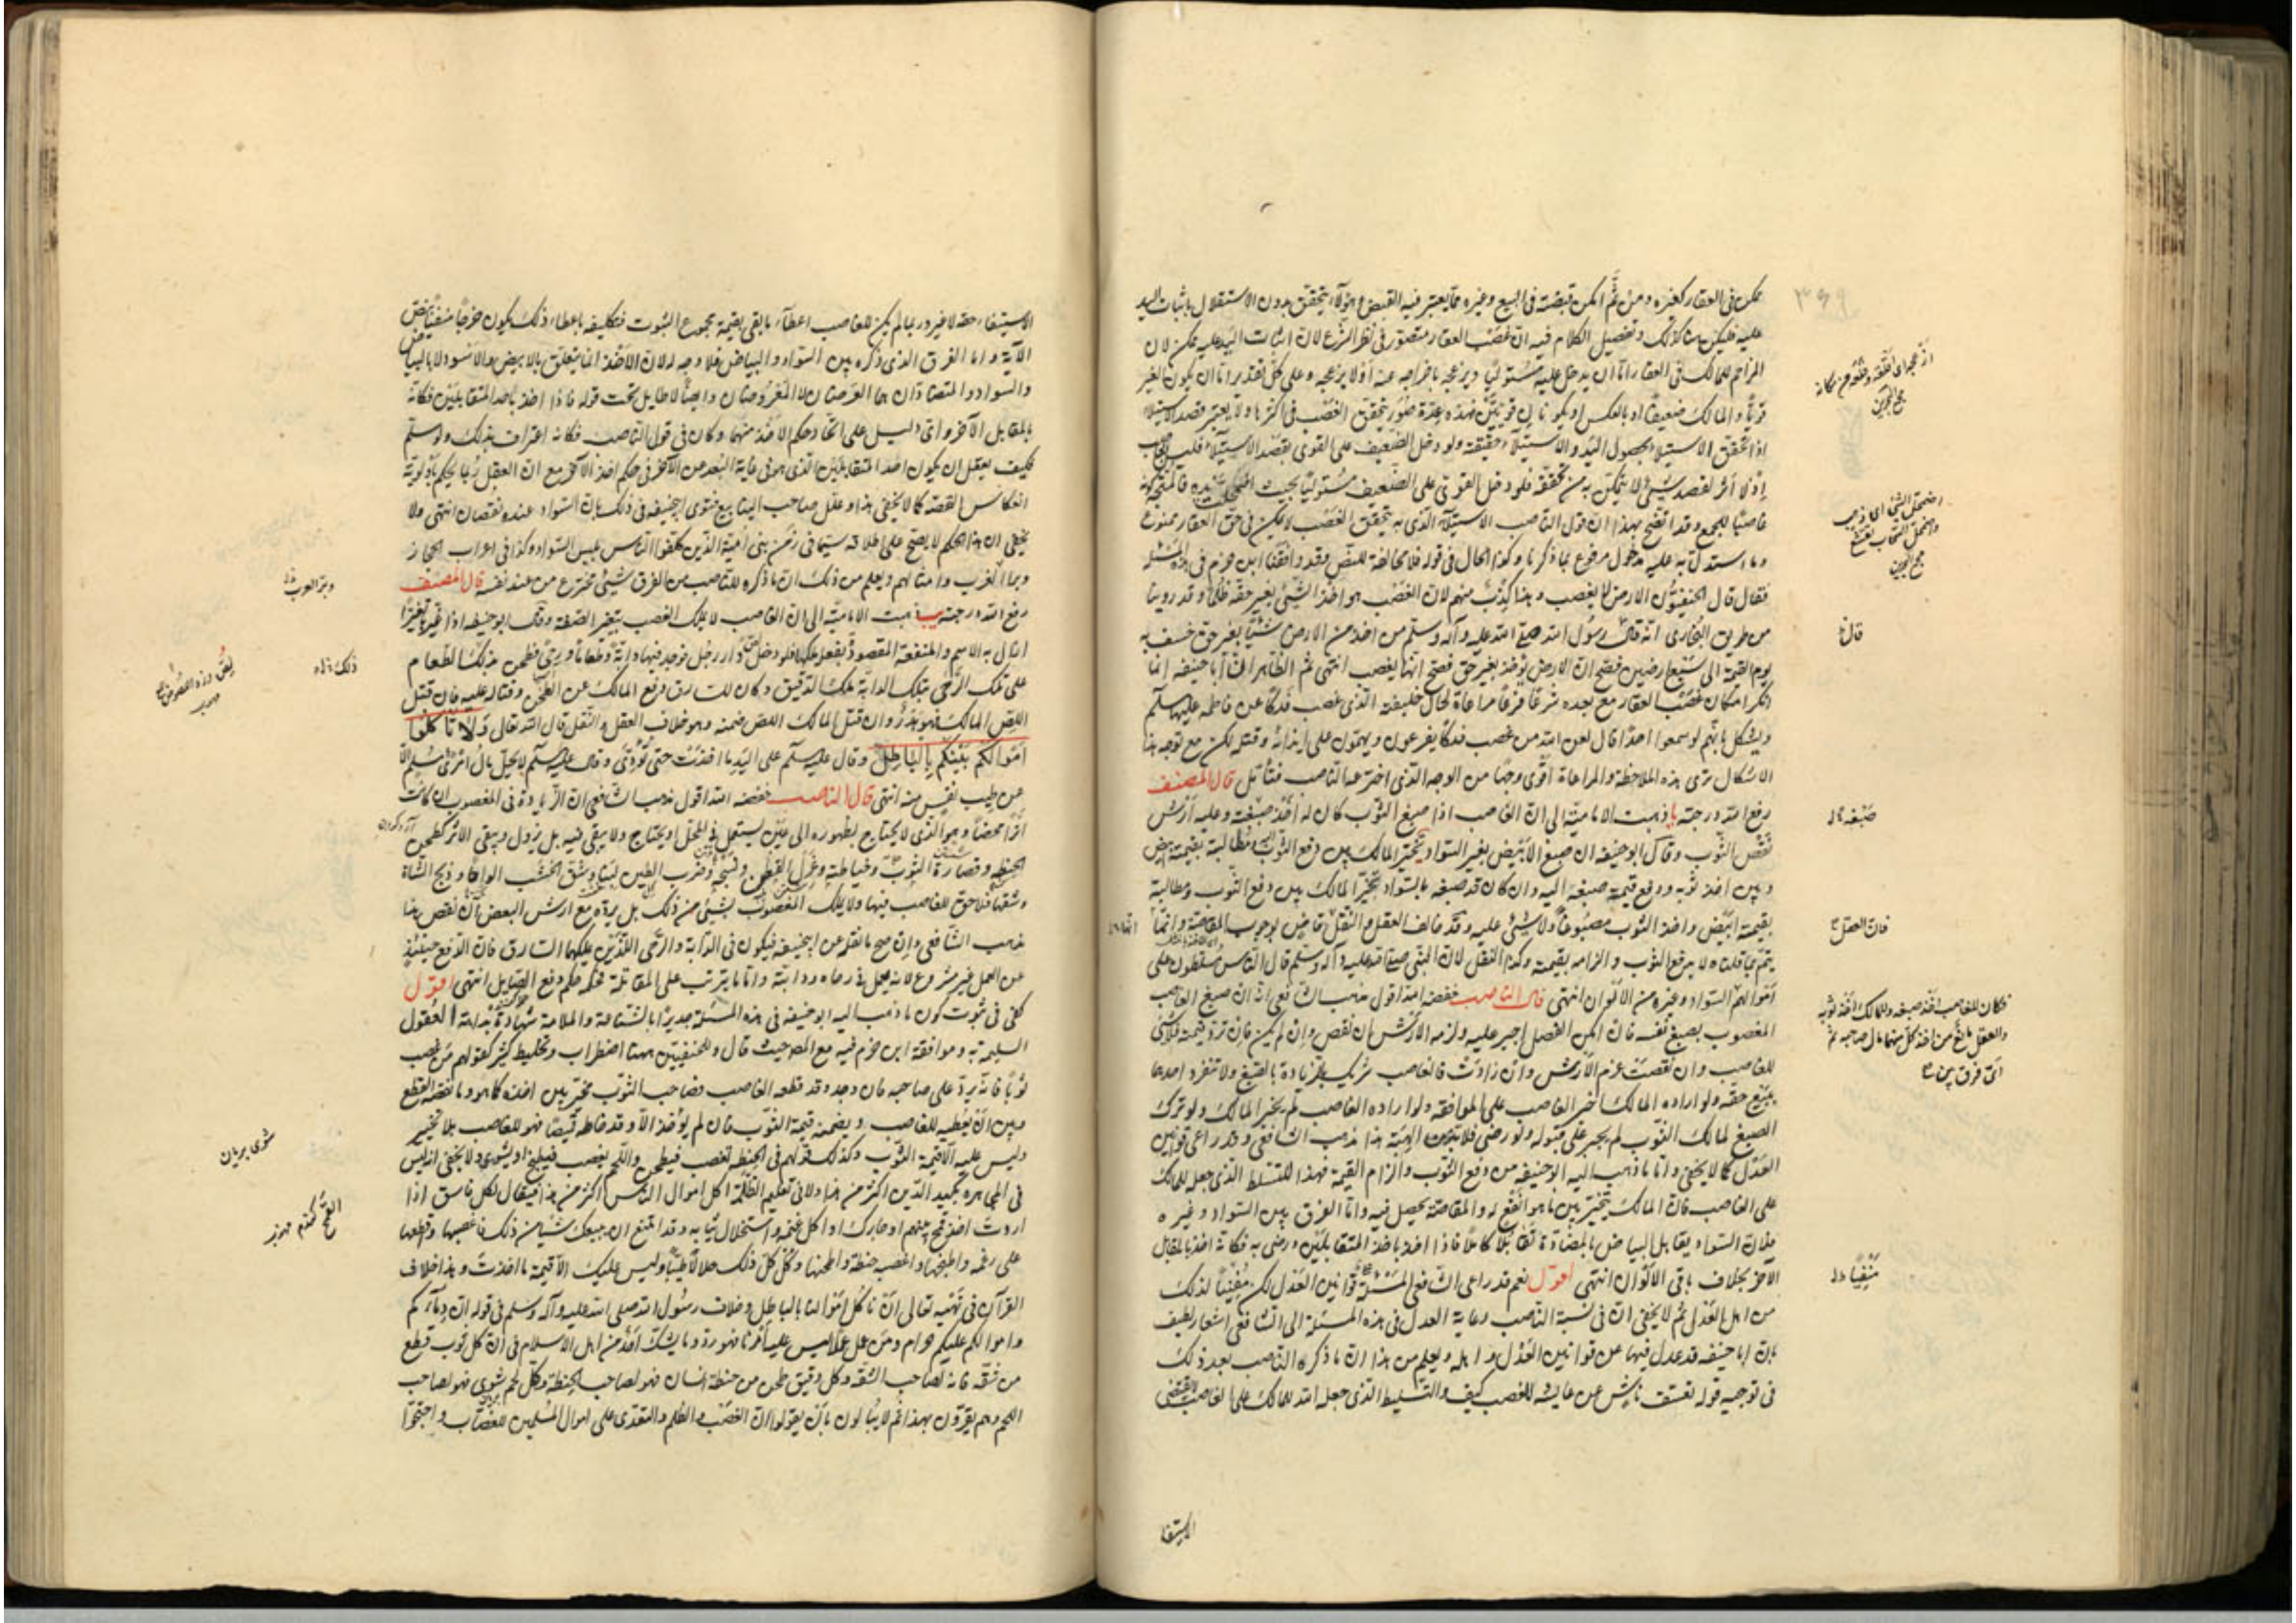 ممكن فى العقار كغيره ومن ثم امكن قبضه فى البيع وغيره مما يعتبر فيه القبض يتحقق بدون الاستقلال باثبات اليد
عليه فليكن هنا كذلك وتفصيل الكلام فيه ان غصب العقار متصور فى نظر الشرع لان اثبات اليد عليه ممكن لان
المزاحم للمالك فى العقار اما ان يدخل عليه مستوليا ويزعجه باخراجه عنه او لا يزعجه وعلى كل تقدير اما ان يكون الغير
قويا والمالك ضعيفا او بالعكس او يكونا قويين فهذه عدة صور يتحقق الغصب فى اكثرها ولا يعتبر قصد الاستيلاء
اذا تحقق الاستيلاء بحصول اليد والاستيلاء حقيقة ولو دخل الضعيف على القوى بقصد الاستيلاء فليس
اذ لا اثر لقصد شئ لا يتمكن من تحققه فلو دخل القوى على الضعيف مستوليا بحيث اضمحلت يده فالمتجه كونه
غاصبا للجميع وقد اتضح بهذا ان قول الناصب الاستيلاء الذى به يتحقق الغصب لا يمكن فى حق العقار ممنوع
وما استدل به عليه مدخول مرفوع بما ذكرنا وكذا الحال فى قوله فلا مخالفة للنص وقد وافقنا ابن حزم فى هذه المسئلة
فقال قال الحنفيون الارض لا يغصب وهذا كذب منهم لان الغصب هو اخذ الشئ بغير حقه ظلما وقد روينا
من طريق البخارى انه قال رسول الله صلى الله عليه وآله وسلم من اخذ من الارض شيئا بغير حق خسف به
يوم القيمة الى سبع ارضين فصح ان الارض يؤخذ بغير حق فصح انها يغصب انتهى ثم الظاهر ان ابا حنيفة انما
انكر امكان غصب العقار مع بعده شرعا فرقا مراعاة لحال خليفته الذى غصب فدكا عن فاطمة عليها السلم
ويشكل بانهم لو سمعوا احدا قال لعن الله من غصب فدكا يفزعون ويهمون على ايذائه وقتله لكن مع توجه هذا
الاشكال ترى هذه الملاحظة والمراعاة اقوى وجها من الوجه الذى اخترعه الناصب فتأمل قال المصنف
رفع الله درجته يا ذهبت الامامية الى ان الغاصب اذا صبغ الثوب كان له اخذ صبغه وعليه ارش
نقص الثوب وقال ابو حنيفة ان صبغ الابيض بغير السواد يتخير المالك بين دفع الثوب ومطالبة بقيمته ابيض
وبين اخذ ثوبه ودفع قيمة صبغه اليه وان كان قد صبغه بالسواد يتخير المالك بين دفع الثوب ومطالبة
بقيمته ابيض واخذ الثوب مصبوغا ولا شئ عليه وقد خالف العقل والنقل قاض بوجوب المقاصة وانما
يتم بما قلناه لا برفع الثوب والزامه بقيمته وكذا النقل لان النبى صلى الله عليه وآله وسلم قال الناس مسلطون على
اموالهم السواد وغيره من الالوان انتهى قال الناصب خفضه الله اقول مذهب الشافعى انه ان صبغ الغاصب
المغصوب بصبغ نفسه فان امكن الفصل اجبر عليه ولزمه الارش ان نقص وان لم يمكن فان لم تزد قيمته فلا شئ
للغاصب وان نقصت غرم الارش وان زادت فالغاصب شريك بالزيادة بالصبغ ولا تنفرد احدهما
ببيع حقه ولو اراده المالك اجبر الغاصب على الموافقة ولو اراده الغاصب لم يجبر المالك ولو ترك
الصبغ لمالك الثوب لم يجبر على قبوله ولو رضى فلا بد من الهبة هذا مذهب الشافعى وقد راعى قوانين
العدل كما لا يخفى واما ما ذهب اليه ابو حنيفة من دفع الثوب والزام القيمة فهذا للتسلط الذى جعله للمالك
على الغاصب فان المالك يتخير بين ما هو انفع له والمقاصة يحصل فيه واما الفرق بين السواد وغيره
فلان السواد يقابل البياض بالمضادة تقابلا كاملا فاذا اخذ باحد المتقابلين ورضى به فكانه اخذ بالمقابل
الآخر بخلاف باقى الالوان انتهى اقول نعم قد راعى الشافعى المسئلة قوانين العدل لكن لذلك
من اهل العدل ثم لا يخفى ان فى نسبة الناصب رعاية العدل فى هذه المسئلة الى الشافعى اشعار لطيف
بان ابا حنيفة قد عدل فيها عن قوانين العدل واهله ويعلم من هذا ان ما ذكره الناصب بعد ذلك
فى توجيه قوله تعسف ناش عن للغصب كيف والتسليط الذى جعل الله للمالك على الغاصب يقتضى
الاستيفا
٣٦٩
ازعجه اى اقلقه وقلعه من مكانه
مجمع البحرين
اضمحل الشئ اى ذهب
واضمحل السحاب تقشع
مجمع البحرين
قال
صبغه
فان العقل
فكان للغاصب اخذ صبغه وللمالك اخذ ثوبه
والعقل مانع من اخذ كل منهما مال صاحبه ثم
اى فرق بين
الاستيفاء حقه لا غير وربما لم يكن للغاصب اعطاء ما بقى بقيمة مجموع الثبوت فتكليفه باعطاء ذلك يكون حرجا منفيا بنص
الآية واما الفرق الذى ذكره بين السواد والبياض فلا وجه له لان الاخذ انما يتعلق بالابيض والاسود لا بالبياض
والسواد والمتضادان هما العرضان لا المعروضان وايضا لا طايل تحت قوله فاذا اخذ باحد المتقابلين فكانه
بالمقابل الآخر واى دليل على اتحاد حكم الاخذ منهما وكان فى قول الناصب فكانه اعتراف بذلك ولو سلم
فكيف يعقل ان يكون احد المتقابلين الذى هو فى غاية البعد من الآخر فى حكم اخذ الآخر مع ان العقل ربما يحكم باولوية
انعكاس القصة كما لا يخفى هذا وعلل صاحب الينابيع فتوى ابى حنيفة فى ذلك بان السواد عنده نقصان انتهى ولا
يخفى ان هذا الحكم لا يصح على اطلاقه سيما فى زمن بنى امية الذين كلفوا الناس بلبس السواد وكذا فى اعراب الحجاز
وبما الغرب وامثالهم ويعلم من ذلك ان ما ذكره الناصب من الفرق شئ مخترع من عند نفسه قال المصنف
رفع الله درجته يب ذهبت الامامية الى ان الغاصب لا يملك الغصب بتغير الصفة وقال ابو حنيفة اذا غير تغييرا
ازال به الاسم والمنفعة المقصودة بفعله ملكها فلو دخل لص دار رجل فوجد فيها دابة وطعاما ورحى فطحن ذلك الطعام
على تلك الرحى بتلك الدابة ملك الدقيق وكان للسارق دفع المالك عن الطحن وقتاله عليه فان قتل
اللص المالك فهو هدر وان قتل المالك اللص ضمنه وهو خلاف العقل والنقل قال الله تعالى ولا تأكلوا
اموالكم بينكم بالباطل وقال عليه السلم على اليد ما اخذت حتى تؤدى وقال عليه السلم لا يحل مال امرئ مسلم الا
عن طيب نفس منه انتهى قال الناصب خفضه الله اقول مذهب الشافعى ان الزيادة فى المغصوب ان كانت
اثرا محضا وهو الذى لا يحتاج لظهوره الى عين يستعمل فى المحل او يحتاج ولا يبقى فيه بل يزول ويبقى الاثر كطحن
الحنطة وقصارة الثوب وخياطته وغزل القطن ونسجه وضرب الطين لبنا وشق الخشب الواحا وذبح الشاة
وشقها فلا حق للغاصب فيها ولا يملك المغصوب بشئ من ذلك بل يرده مع ارش البعض ان نقص هذا
مذهب الشافعى وان صح ما نقله عن ابى حنيفة فيكون فى الدابة والرحى اللذين يملكهما السارق فان الدفع حينئذ
عن العمل غير مشروع لانه يعمل فى رحاه ودابته واما ما يترتب على المقاتلة فحكمه حكم دفع الصايل انتهى اقول
كفى فى ثبوت كون ما ذهب اليه ابو حنيفة فى هذه المسئلة جديرا بالشناعة والملامة شهادة بداهة العقول
السليمة به وموافقة ابن حزم فيه مع المص حيث قال وللحنفيين ههنا اضطراب وتخليط كثير كقولهم من غصب
ثوبا فانه يرد على صاحبه فان وجد وقد قطعه الغاصب فصاحب الثوب مخير بين اخذه كما هو وما نقصه القطع
وبين ان يعطيه للغاصب ويضمنه قيمة الثوب فان لم يؤخذ الا وقد خاطه قميصا فهو للغاصب بلا تخيير
وليس عليه الا قيمة الثوب وكذلك قولهم فى الحنطة تغصب فيطحن واللحم يغصب فيطبخ او يشوى ولا يخفى انه ليس
فى المجاهرة بكيد الدين اكثر من هذا ولا فى تعليم الظلمة اكل اموال الناس اكثر من هذا فيقال لكل فاسق اذا
اردت اخذ قمح يتيم او جارك او اكل غنمه واستحلال ثيابه وقد امتنع ان يبيعك شيئا من ذلك فاغصبها وقطعها
على رغمه واطبخها واغصب حنطته واطحنها وكل كل ذلك حلالا طيبا وليس عليك الا قيمة ما اخذت وهذا خلاف
القرآن فى نهيه تعالى ان نأكل اموالنا بالباطل وخلاف رسول الله صلى الله عليه وآله وسلم فى قوله ان دماءكم
واموالكم عليكم حرام ومن عمل عملا ليس عليه امرنا فهو رد وما يشك احد من اهل الاسلام فى ان كل ثوب قطع
من شقة فانه لصاحب الشقة وكل دقيق طحن من حنطة انسان فهو لصاحب الحنطة وكل لحم شوى فهو لصاحب
اللحم وهم يقرون بهذا ثم لا يبالون بان يقولوا ان الغصب والظلم والتعدى على اموال المسلمين للغصاب واحتجوا
ذلك
شوى بريان
القمح گندم مهذب